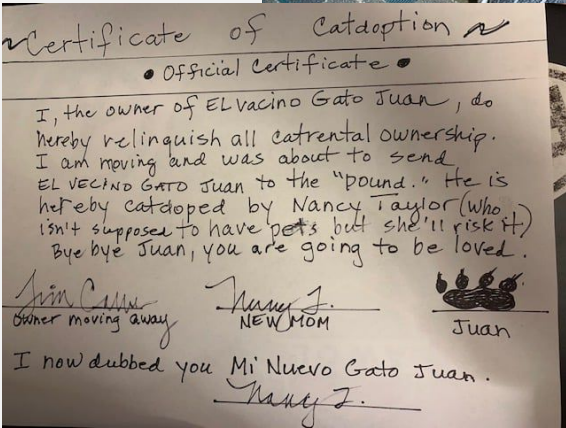 ~Certificate of Catdoption~
• Official Certificate •
I, the owner of EL Vacino Gato Juan, do
hereby relinquish all catrental ownership.
I am moving and was about to send
EL VECINO GATO Juan to the "pound." He is
hereby catdoped by Nancy Taylor (who
isn't supposed to have pets but she'll risk it)
Bye bye Juan, you are going to be loved.
Nancy T.
owner moving away NEW MOM Juan
I now dubbed you Mi Nuevo Gato Juan.
Nancy T.